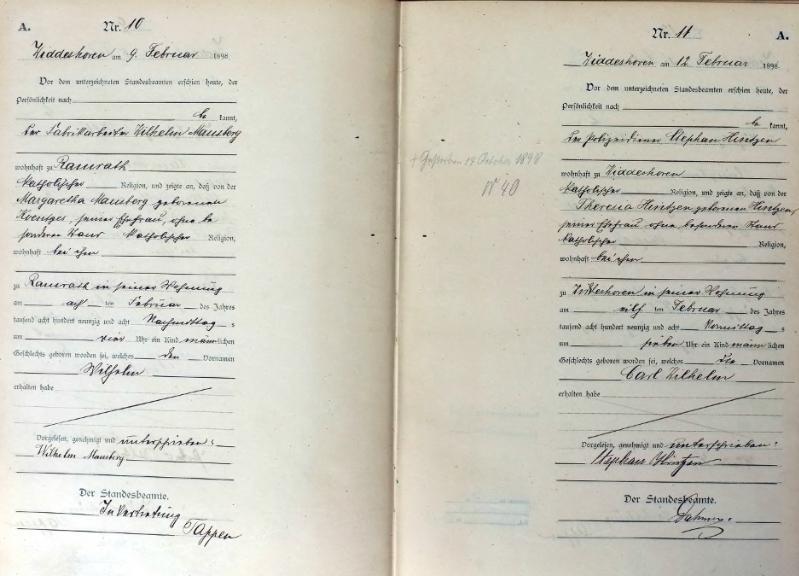 A. Nr. 10
Hiddeshoven am 9. Februar 1898
Vor dem unterzeichneten Standesbeamten erschien heute, der
Persönlichkeit nach
be kannt,
der Fabrikarbeiter Wilhelm Mausberg
wohnhaft zu Ramrath
katholischer Religion, und zeigte an, daß von der
Margaretha Mausberg geborenen
seiner Ehefrau, ohne be
sonderen Stand katholischer Religion,
wohnhaft bei ihm
zu Ramrath in seiner Wohnung
am acht ten Februar des Jahres
tausend acht hundert neunzig und acht Nachmittag s
um vier Uhr ein Kind männ lichen
Geschlechts geboren worden sei, welches den Vornamen
Wilhelm
erhalten habe
Vorgelesen, genehmigt und unterschrieben:
Wilhelm Mausberg
Der Standesbeamte.
In Vertretung
Tappen
Nr. 11 A.
Hiddeshoven am 12. Februar 1898
Vor dem unterzeichneten Standesbeamten erschien heute, der
Persönlichkeit nach
be kannt,
der Polizeidiener Stephan Hintzen
wohnhaft zu Hiddeshoven
katholischer Religion, und zeigte an, daß von der
Theresia Hintzen geborenen Hintzen,
seiner Ehefrau ohne besonderen Stand
katholischer Religion,
wohnhaft bei ihm
zu Hiddeshoven in seiner Wohnung
am elf ten Februar des Jahres
tausend acht hundert neunzig und acht Vormittag s
um sieben Uhr ein Kind männ lichen
Geschlechts geboren worden sei, welches die Vornamen
Carl Wilhelm
erhalten habe
Vorgelesen, genehmigt und unterschrieben:
Stephan Hintzen
Der Standesbeamte.
+ Gestorben 19 October 1898
No 40